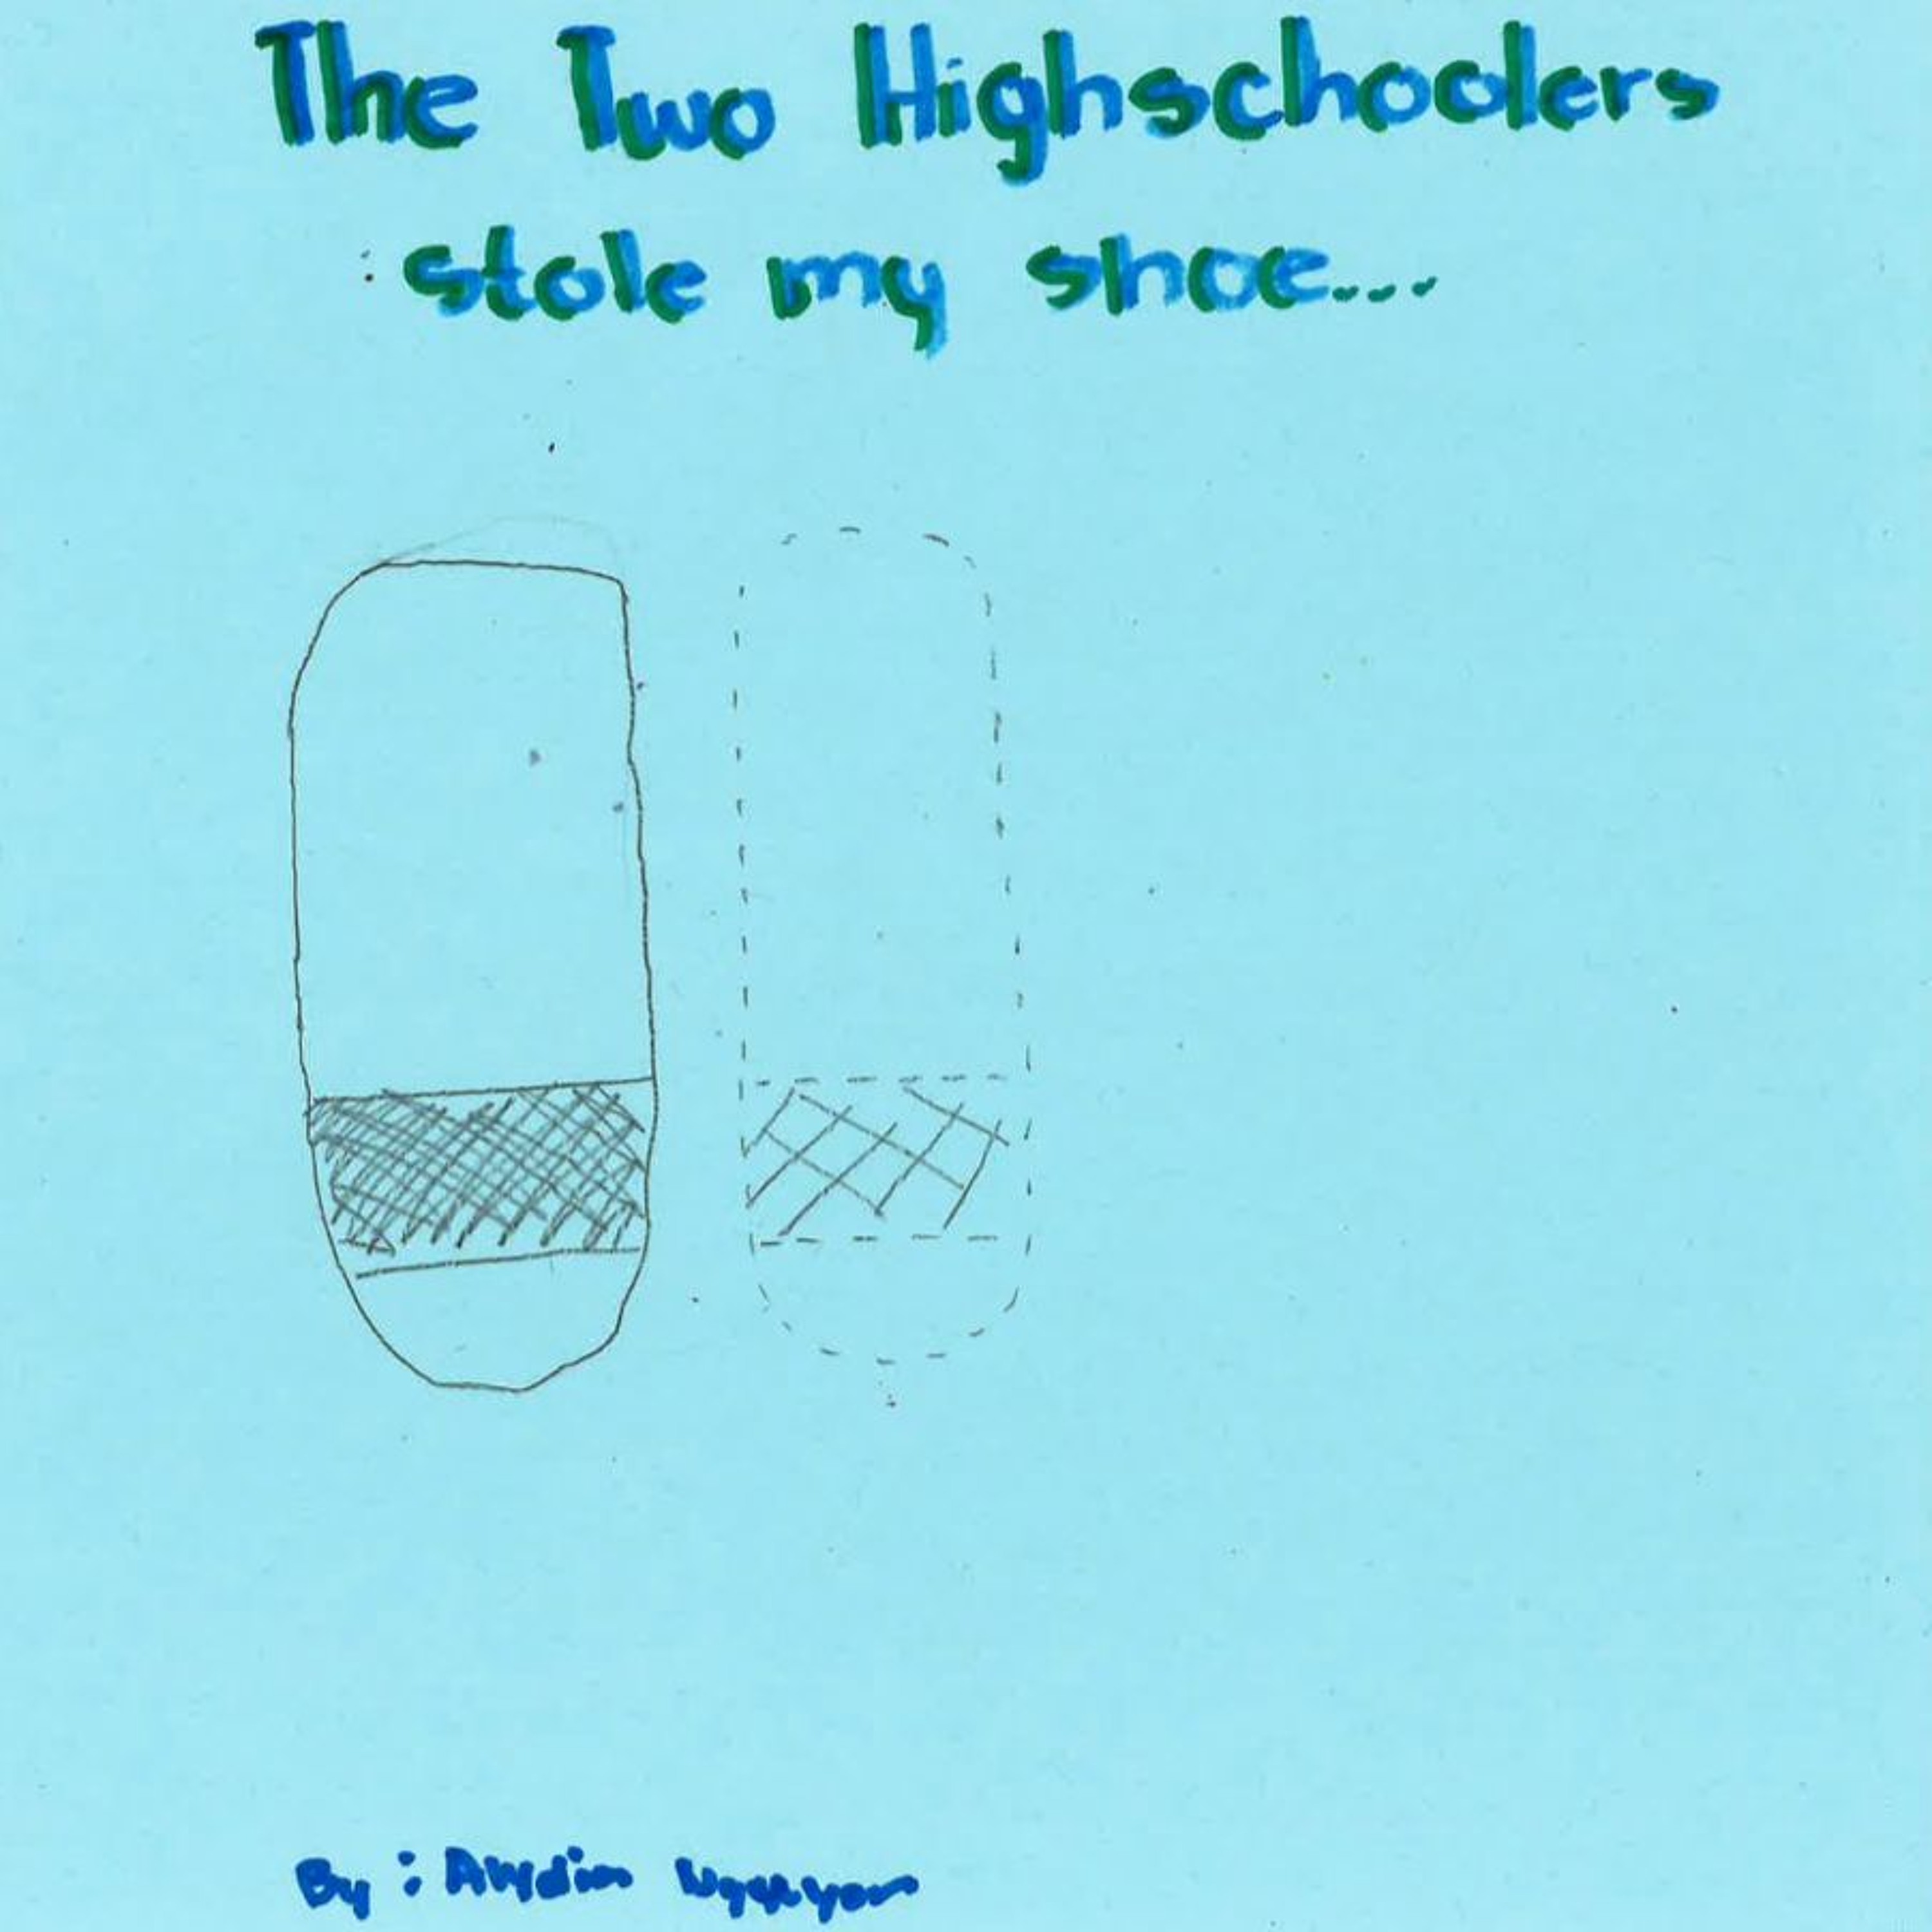 The Two Highschoolers
stole my shoe...
By: Nguyen